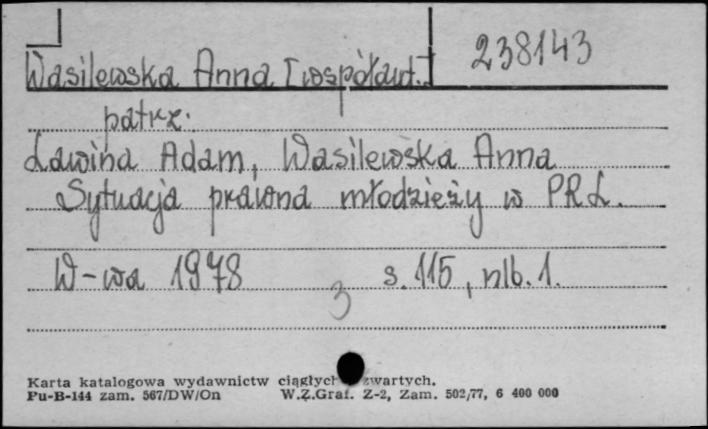 238143
Wasilewska Anna [współaut.]
patrz.
Lawina Adam, Wasilewska Anna
Sytuacja prawna młodzieży w PRL.
W-wa 1978 s. 115, nlb. 1.
3
Karta katalogowa wydawnictw ciągłych zwartych.
Pu-B-144 zam. 567/DW/On W.Z.Graf. Z-2, Zam. 502/77, 6 400 000